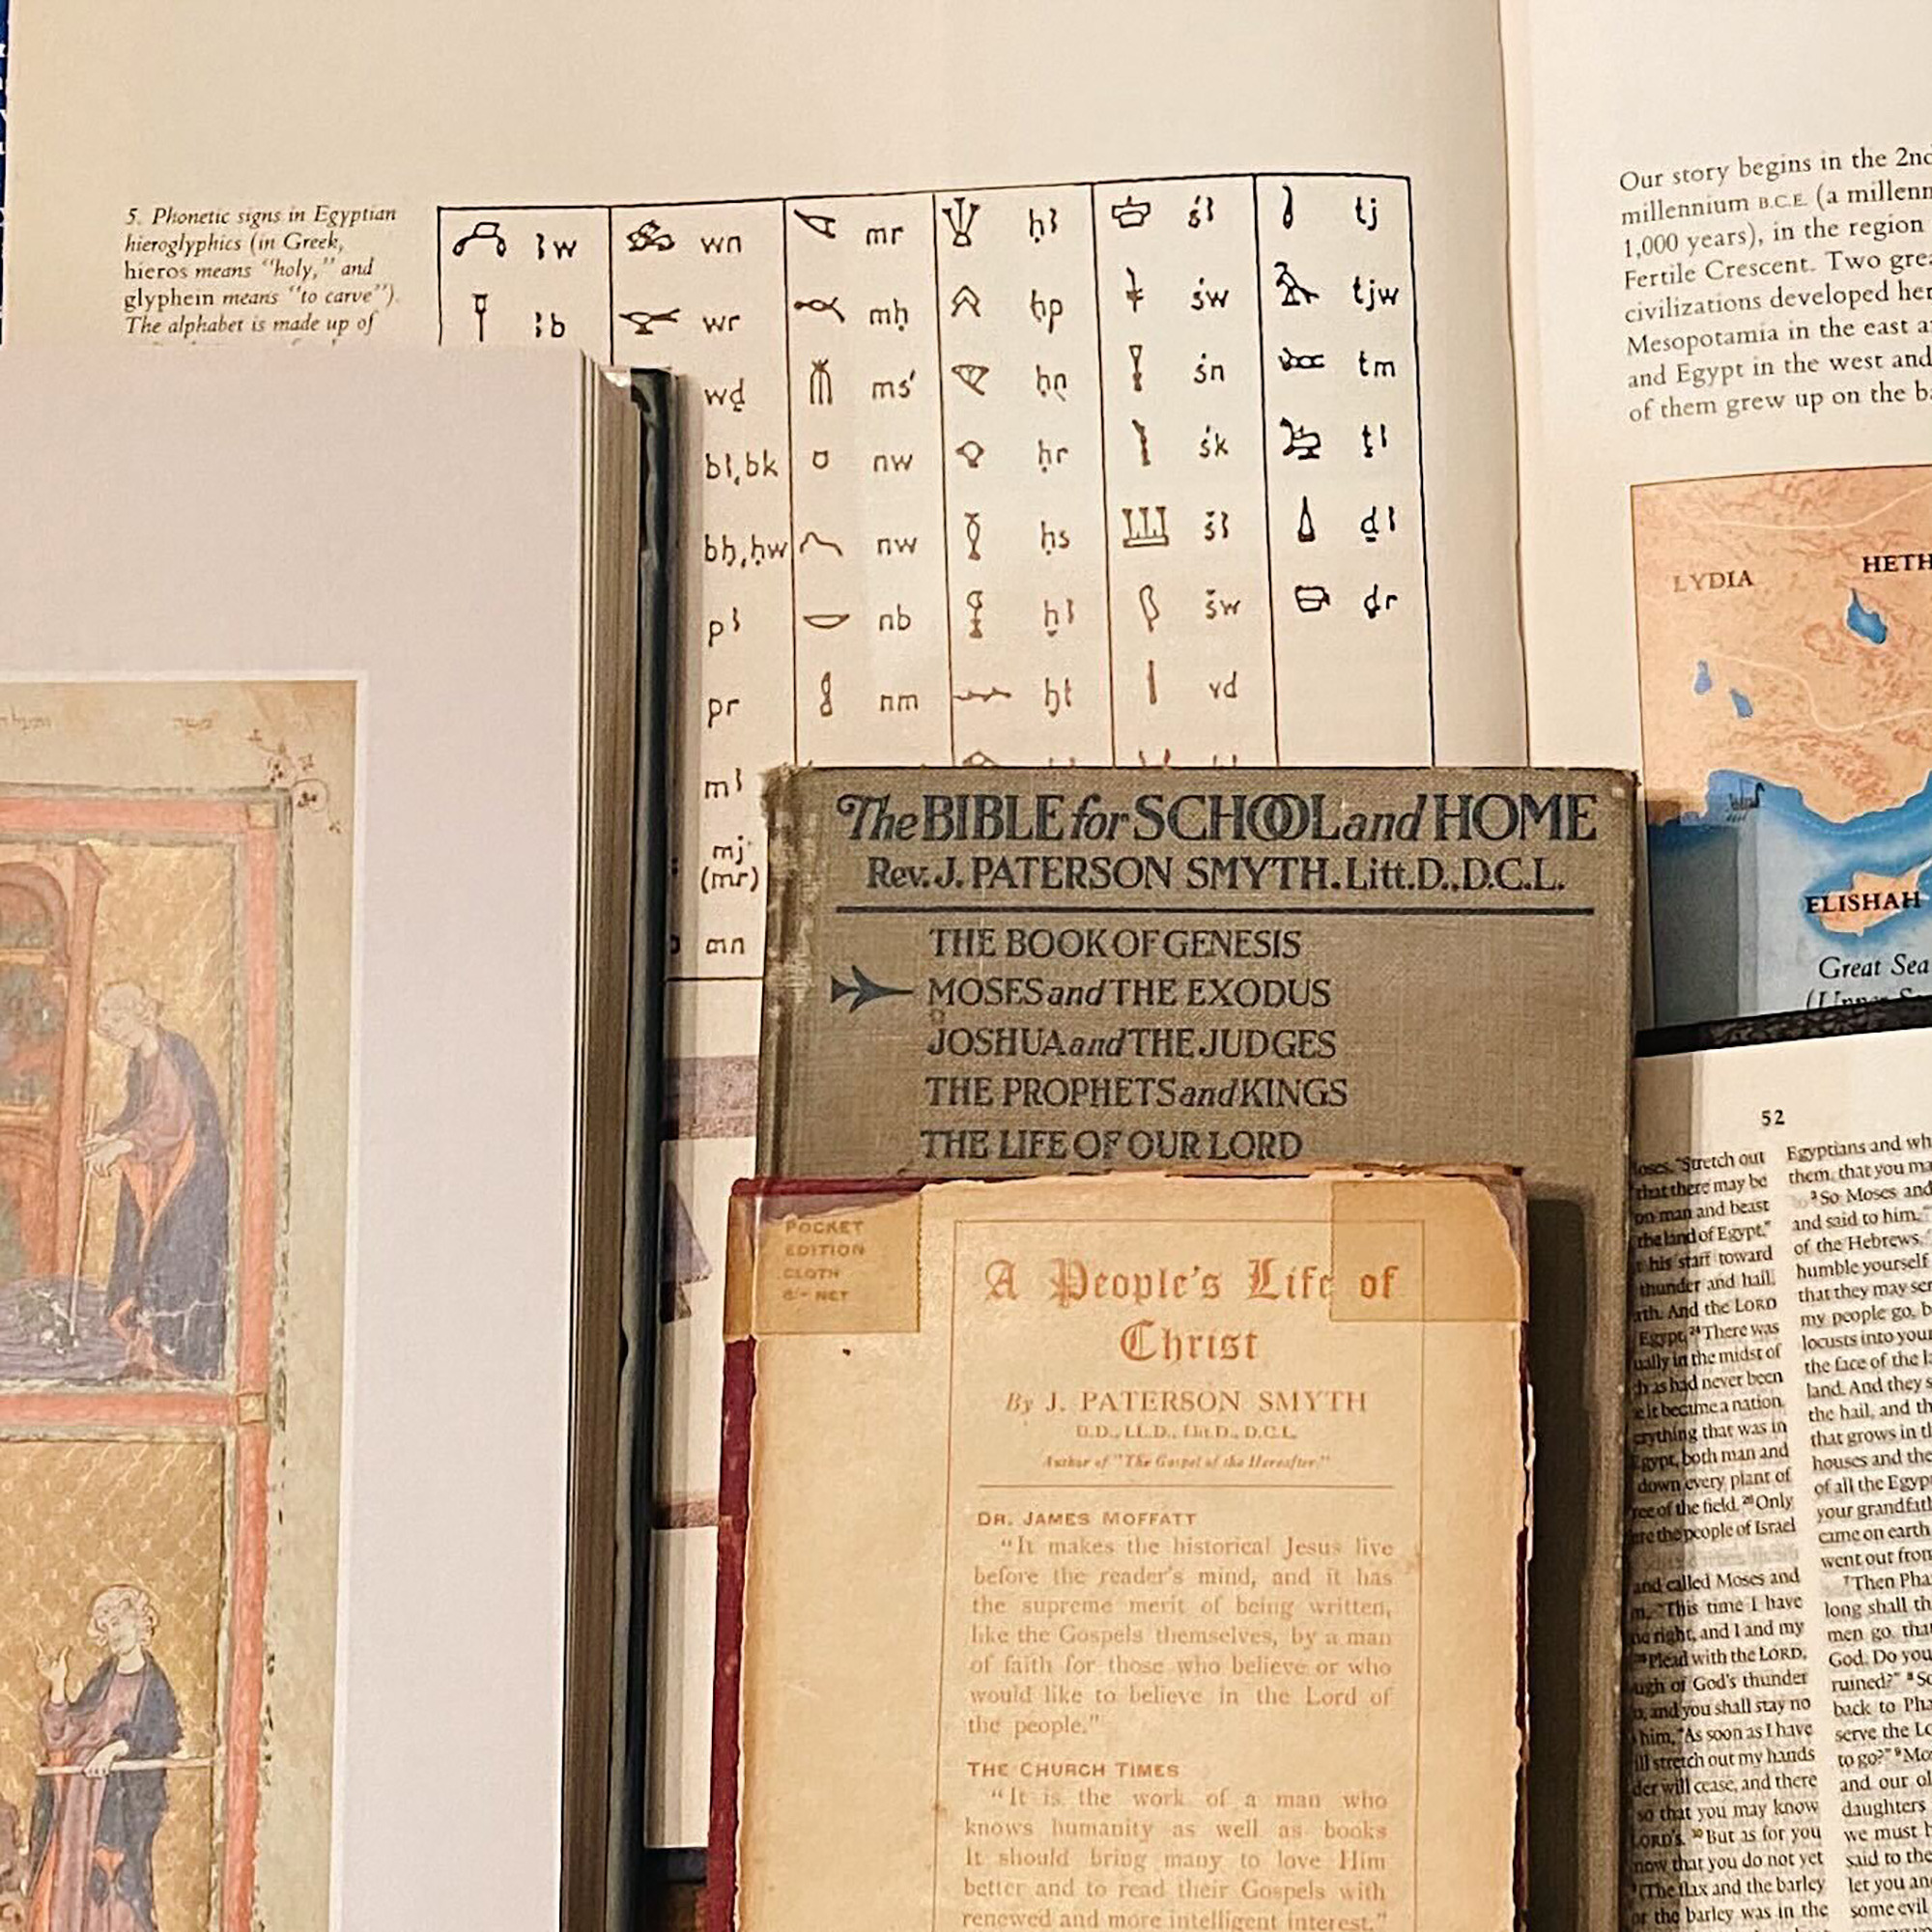 5. Phonetic signs in Egyptian
hieroglyphics (in Greek,
hieros means "holy," and
glyphein means "to carve").
The alphabet is made up of
ꜣw wn mr ḥꜣ šꜣ tj
ꜣb wr mḥ ḥp św tjw
wḏ ms ḥn śn tm
bꜣ,bk nw ḥr śk ṯꜣ
bḥ,ḥw nw ḥs šꜣ ḏꜣ
pꜣ nb ḫꜣ šw ḏr
pr nm ḫt
mꜣ
mj
(mr)
mn
Our story begins in the 2nd
millennium B.C.E. (a millenn
1,000 years), in the region
Fertile Crescent. Two grea
civilizations developed her
Mesopotamia in the east a
and Egypt in the west and
of them grew up on the b
LYDIA
HETH
ELISHAH
Great Sea
The BIBLE for SCHOOL and HOME
Rev. J. PATERSON SMYTH. Litt.D., D.C.L.
THE BOOK OF GENESIS
MOSES and THE EXODUS
JOSHUA and THE JUDGES
THE PROPHETS and KINGS
THE LIFE OF OUR LORD
POCKET
EDITION
CLOTH
NET
A People's Life of
Christ
By J. PATERSON SMYTH
D.D., LL.D., Litt.D., D.C.L.
Author of "The Gospel of the Hereafter."
DR. JAMES MOFFATT
"It makes the historical Jesus live
before the reader's mind, and it has
the supreme merit of being written,
like the Gospels themselves, by a man
of faith for those who believe or who
would like to believe in the Lord of
the people."
THE CHURCH TIMES
"It is the work of a man who
knows humanity as well as books
It should bring many to love Him
better and to read their Gospels with
renewed and more intelligent interest."
52
oses, "Stretch out
that there may be
on man and beast
the land of Egypt."
his staff toward
thunder and hail,
rth. And the LORD
Egypt; ²⁴There was
ually in the midst of
h as had never been
e it became a nation.
erything that was in
Egypt, both man and
down every plant of
ree of the field. ²⁶Only
ere the people of Israel
and called Moses and
"This time I have
he right, and I and my
²⁸Plead with the LORD,
ugh of God's thunder
o, and you shall stay no
him, "As soon as I have
ill stretch out my hands
der will cease, and there
so that you may know
LORD's. ³⁰But as for you
now that you do not yet
(The flax and the barley
or the barley was in the
Egyptians and wh
them, that you ma
³So Moses and
and said to him, "
of the Hebrews, '
humble yourself
that they may ser
my people go, b
locusts into your
the face of the la
land. And they s
the hail, and th
that grows in th
houses and the
of all the Egyp
your grandfath
came on earth
went out from
⁷Then Pha
long shall th
men go, tha
God. Do you
ruined?" ⁸So
back to Pha
serve the Lo
to go?" ⁹Mo
and our ol
daughters
we must h
said to the
let you an
some evil